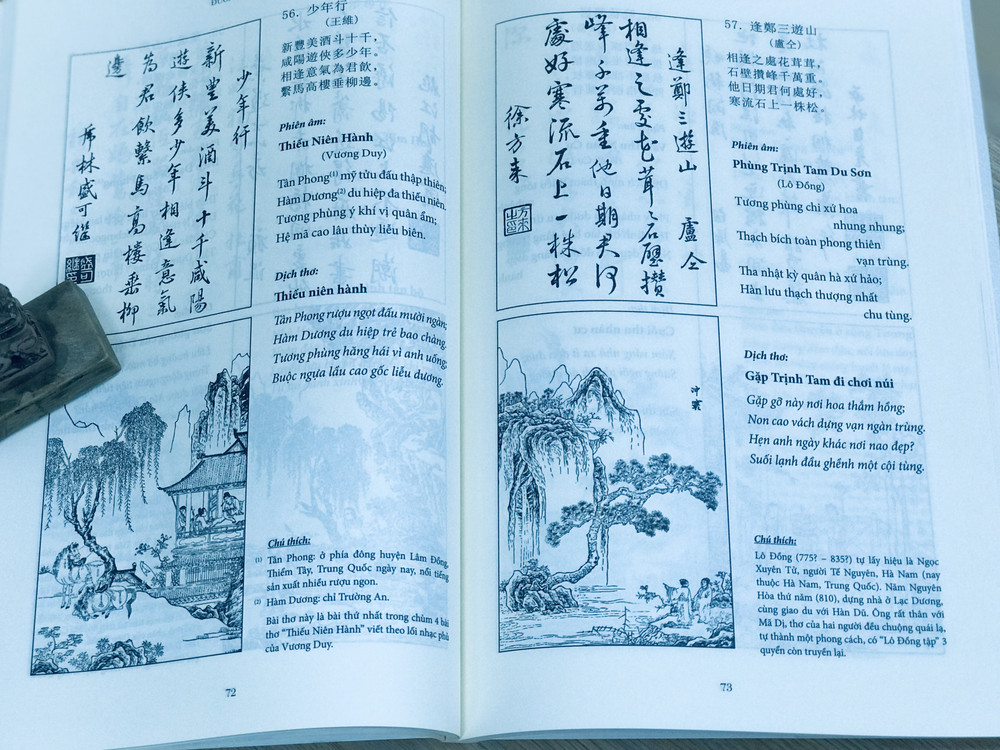 56. 少年行
(王維)
新豐美酒斗十千，
咸陽遊俠多少年。
相逢意氣為君飲，
繫馬高樓垂柳邊。
Phiên âm:
Thiếu Niên Hành
(Vương Duy)
Tân Phong(1) mỹ tửu đấu thập thiên;
Hàm Dương(2) du hiệp đa thiếu niên.
Tương phùng ý khí vị quân ẩm;
Hệ mã cao lâu thùy liễu biên.
Dịch thơ:
Thiếu niên hành
Tân Phong rượu ngọt đấu mười ngàn;
Hàm Dương du hiệp trẻ bao chàng.
Tương phùng hăng hái vì anh uống;
Buộc ngựa lầu cao gốc liễu dương.
Chú thích:
(1) Tân Phong: ở phía đông huyện Lâm Đồng,
Thiểm Tây, Trung Quốc ngày nay, nổi tiếng
sản xuất nhiều rượu ngon.
(2) Hàm Dương: chỉ Trường An.
Bài thơ này là bài thứ nhất trong chùm 4 bài
thơ "Thiếu Niên Hành" viết theo lối nhạc phủ
của Vương Duy.
少年行
新豐美酒斗十千咸陽
遊俠多少年相逢意氣
為君飲繫馬高樓垂柳
邊
席林盛可繼
72
57. 逢鄭三遊山
(盧仝)
相逢之處花茸茸，
石壁攢峰千萬重。
他日期君何處好，
寒流石上一株松。
Phiên âm:
Phùng Trịnh Tam Du Sơn
(Lô Đồng)
Tương phùng chi xứ hoa
nhung nhung;
Thạch bích toàn phong thiên
vạn trùng.
Tha nhật kỳ quân hà xứ hảo;
Hàn lưu thạch thượng nhất
chu tùng.
Dịch thơ:
Gặp Trịnh Tam đi chơi núi
Gặp gỡ này nơi hoa thắm hồng;
Non cao vách dựng vạn ngàn trùng.
Hẹn anh ngày khác nơi nao đẹp?
Suối lạnh đầu ghềnh một cội tùng.
Chú thích:
Lô Đồng (775? – 835?) tự lấy hiệu là Ngọc
Xuyên Tử, người Tế Nguyên, Hà Nam (nay
thuộc Hà Nam, Trung Quốc). Năm Nguyên
Hòa thứ năm (810), dựng nhà ở Lạc Dương,
cùng giao du với Hàn Dũ. Ông rất thân với
Mã Dị, thơ của hai người đều chuộng quái lạ,
tự thành một phong cách, có "Lô Đồng tập" 3
quyển còn truyền lại.
逢鄭三遊山 盧仝
相逢之處花茸〻石壁攢
峰千萬重他日期君何
處好寒流石上一株松
徐方来
73